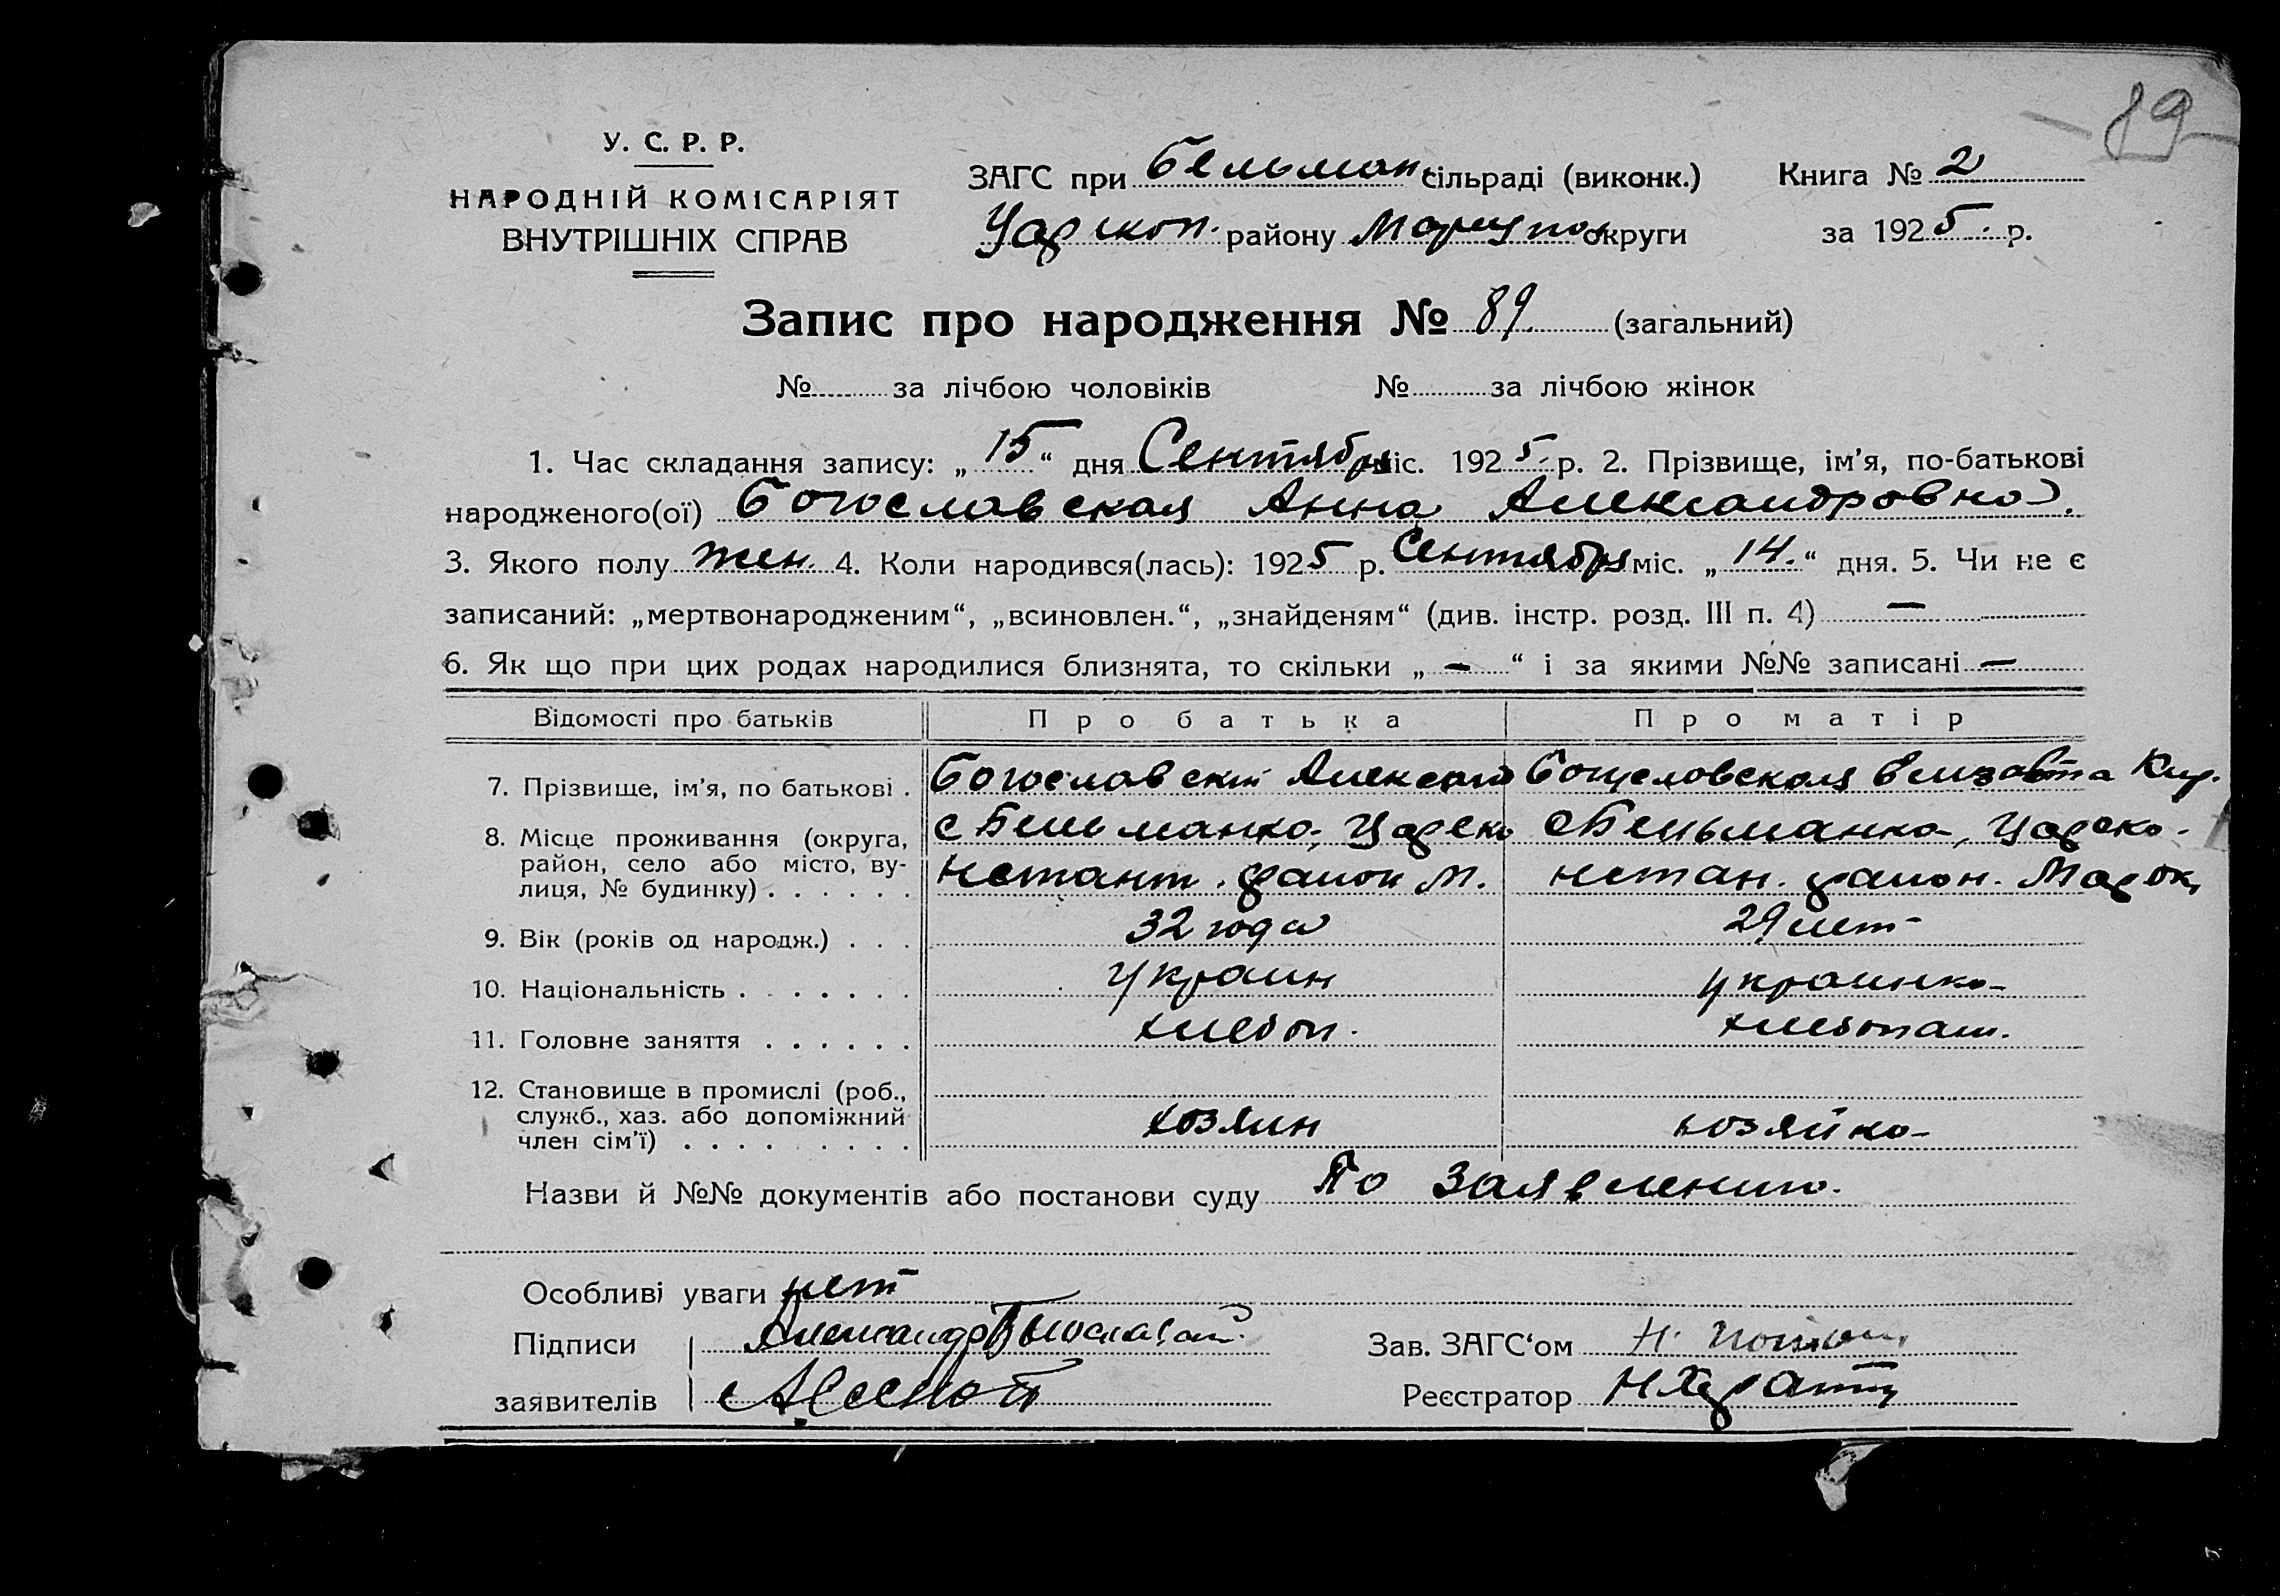 89
У. С. Р. Р.
НАРОДНІЙ КОМІСАРІЯТ
ВНУТРІШНІХ СПРАВ
ЗАГС при Бельман. сільраді (виконк.) Книга № 2
Царскоп. району Мариупол округи за 1925 р.
Запис про народження № 89. (загальний)
№ за лічбою чоловіків № за лічбою жінок
1. Час складання запису: „15“ дня Сентября міс. 1925 р. 2. Прізвище, ім’я, по-батькові
народженого(ої) Богославская Анна Александровна.
3. Якого полу жен. 4. Коли народився(лась): 1925 р. Сентября міс. „14.“ дня. 5. Чи не є
записаний: „мертвонародженим“, „всиновлен.“, „знайденям“ (див. інстр. розд. III п. 4) —
6. Як що при цих родах народилися близнята, то скільки „—“ і за якими №№ записані —
Відомості про батьків Про батька Про матір
7. Прізвище, ім’я, по батькові . Богославский Александ Богословская Елизавта Кир.
8. Місце проживання (округа, с Бельманка, Царско с Бельманка, Царско-
район, село або місто, ву- нстант. район М. нстан. район. Мар ок,
лиця, № будинку) . . . . . .
9. Вік (років од народж.) . . . 32 года 29 лет
10. Національність . . . . . . . украин украинка
11. Головне заняття . . . . . . хлебоп. хлебопаш.
12. Становище в промислі (роб.,
служб., хаз. або допоміжний хозяин хозяйка
член сім’ї) . . . . . . . .
Назви й №№ документів або постанови суду По заявлению.
Особливі уваги нет
Підписи Александр Богославский Зав. ЗАГС‘ом Н.
заявителів Реєстратор